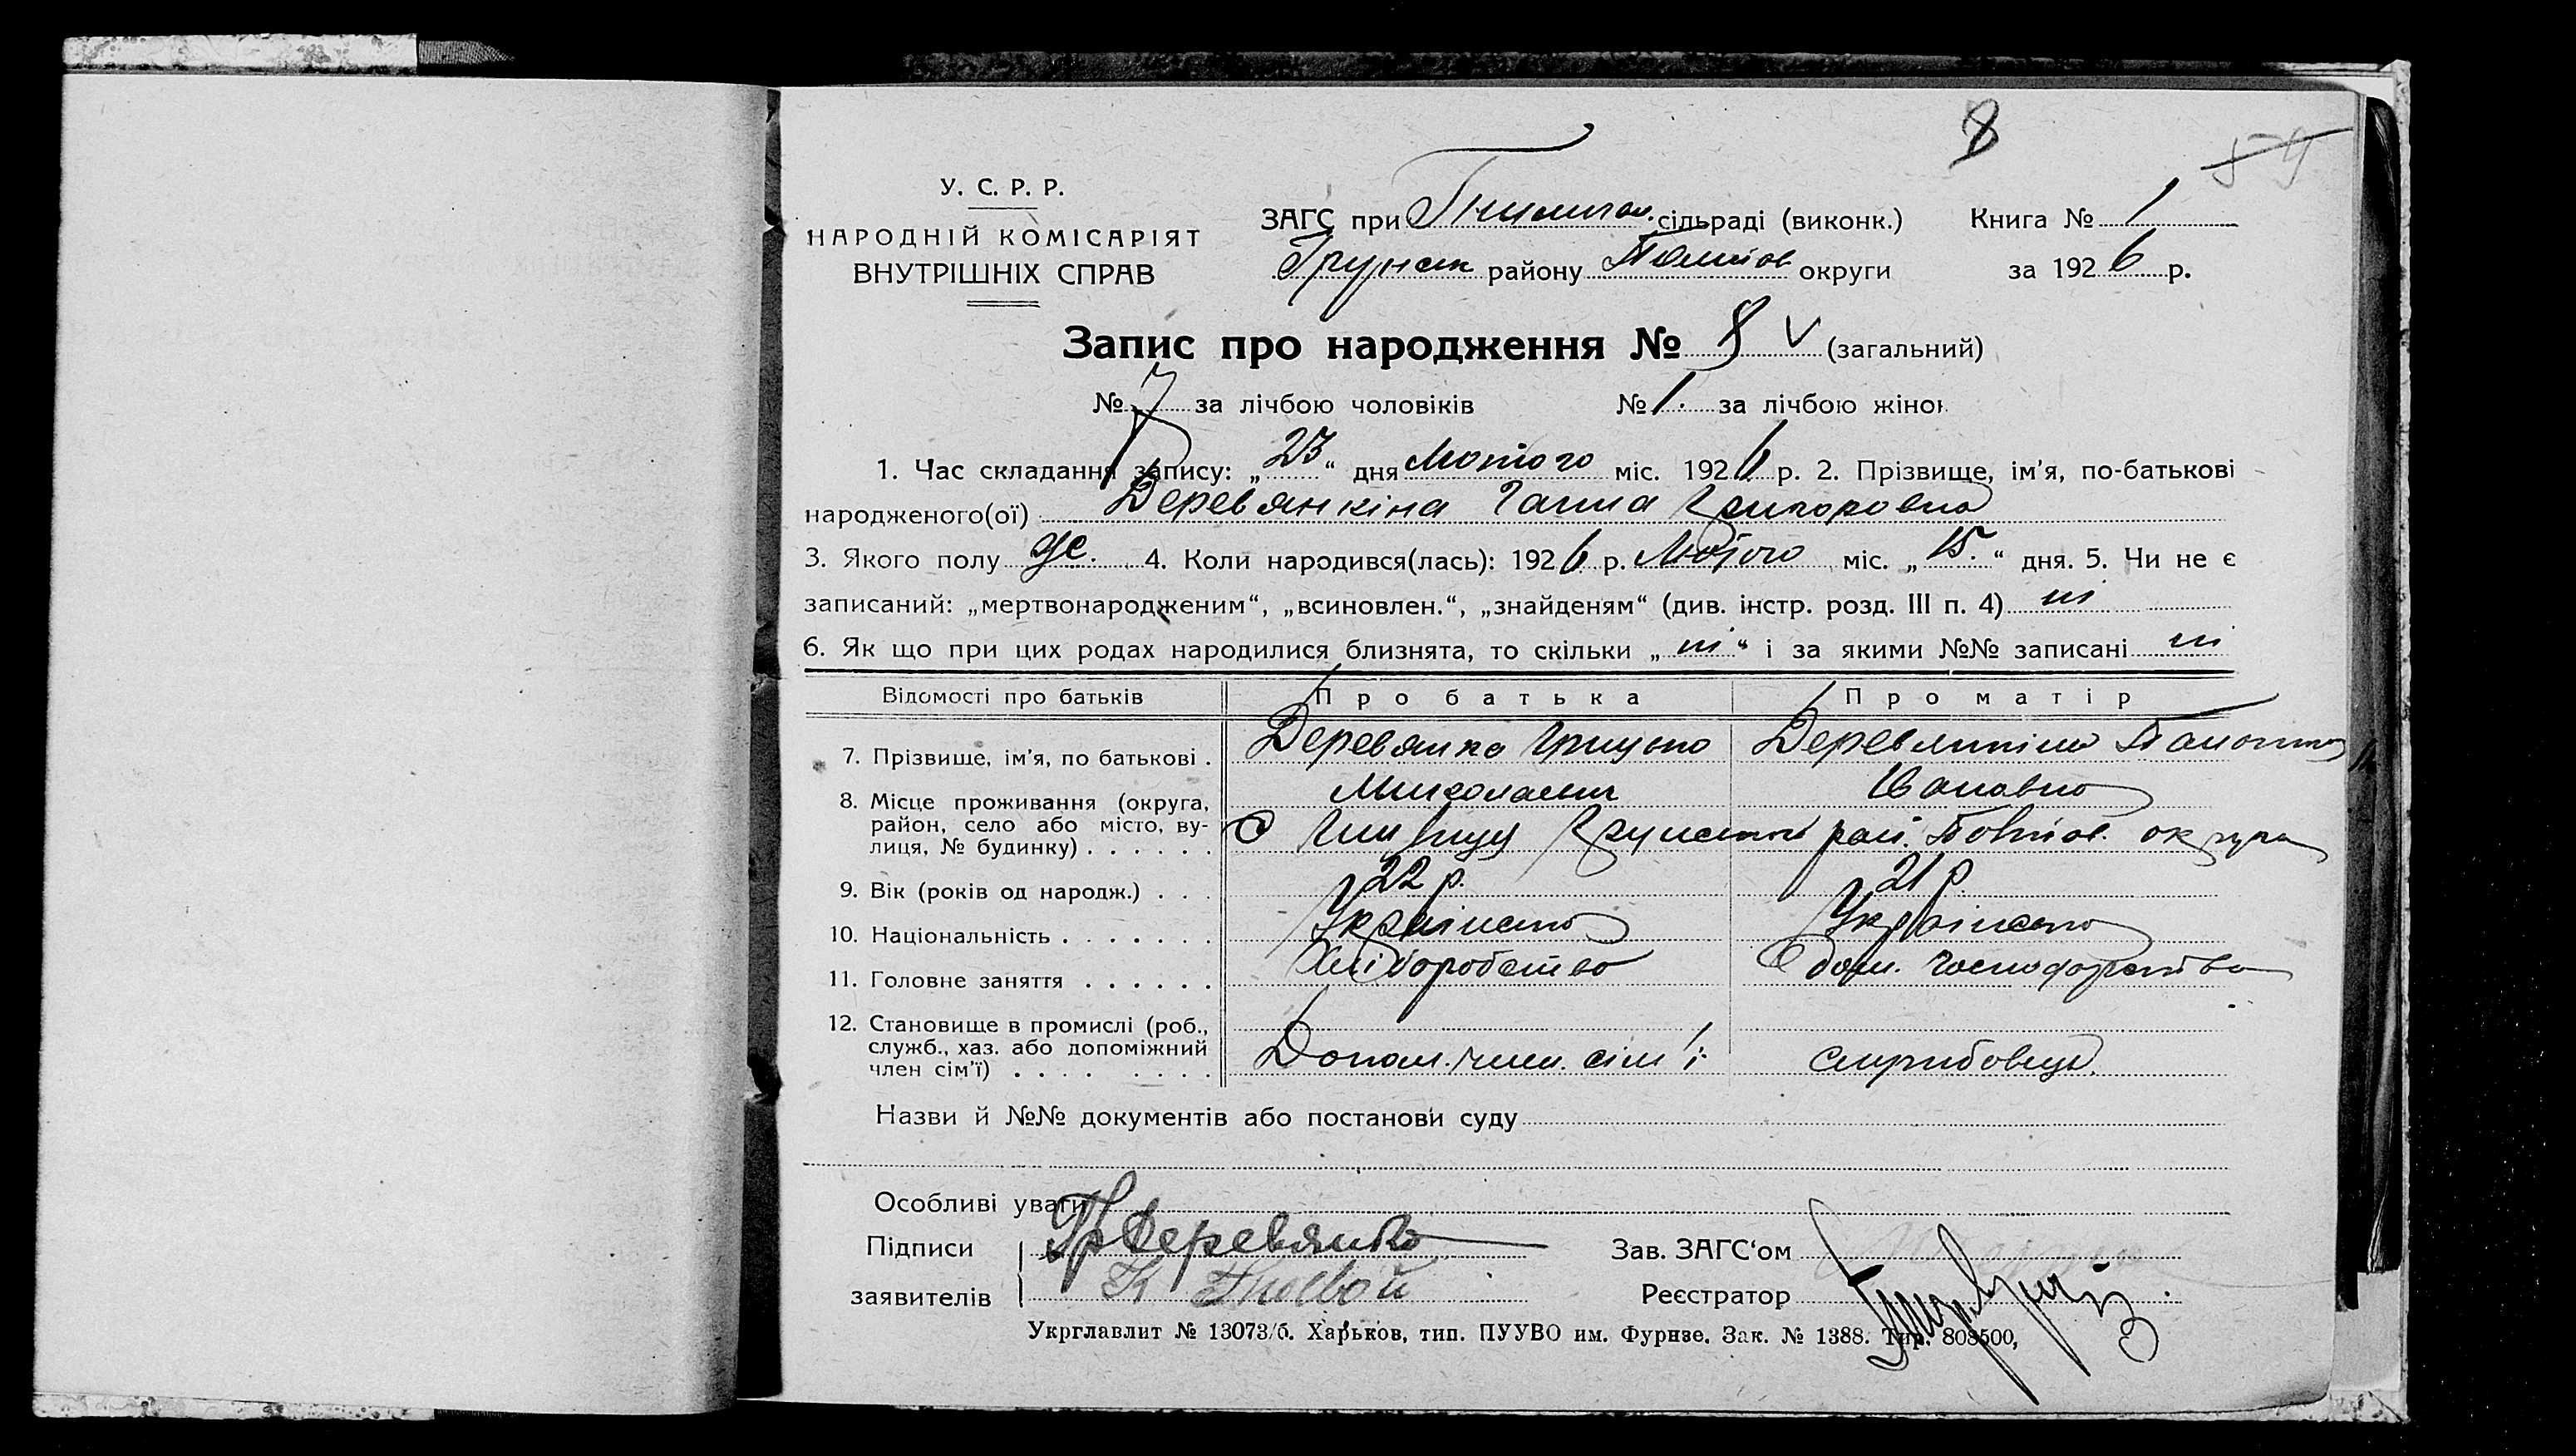 8
54
У. С. Р. Р.
НАРОДНІЙ КОМІСАРІЯТ
ВНУТРІШНІХ СПРАВ
ЗАГС при сільраді (виконк.) Книга № 1
Грунськ району Полтов округи за 1926 р.
Запис про народження № 8 V (загальний)
№ 7 за лічбою чоловіків № 1. за лічбою жінок
1. Час складання запису: „23“ дня Лютого міс. 1926 р. 2. Прізвище, ім’я, по-батькові
народженого(ої) Деревянкіна Ганна Григоровна
3. Якого полу же. 4. Коли народився(лась): 1926 р. Лютого міс. „15.“ дня. 5. Чи не є
записаний: „мертвонародженим“, „всиновлен.“, „знайденям“ (див. інстр. розд. III п. 4) ні
6. Як що при цих родах народилися близнята, то скільки „ні“ і за якими №№ записані ні
Відомості про батьків Про батька Про матір
7. Прізвище, ім’я, по батькові . Деревянко Грицько Деревянкіна
Миколаєвич Івановна
8. Місце проживання (округа,
район, село або місто, ву-
лиця, № будинку) . . . . . . С рай. Полтов. округа
9. Вік (років од народж.) . . . 22 р. 21 р.
10. Національність . . . . . . . Українець Українка
11. Головне заняття . . . . . . Хліборобство дом. господарство
12. Становище в промислі (роб.,
служб., хаз. або допоміжний
член сім’ї) . . . . . . . . Допом. член. сім’ї
Назви й №№ документів або постанови суду
Особливі уваги
Підписи Гр Деревянко Зав. ЗАГС‘ом
заявителів К Реєстратор
Укрглавлит № 13073/б. Харьков, тип. ПУУВО им. Фрунзе. Зак. № 1388. Тир. 808500,